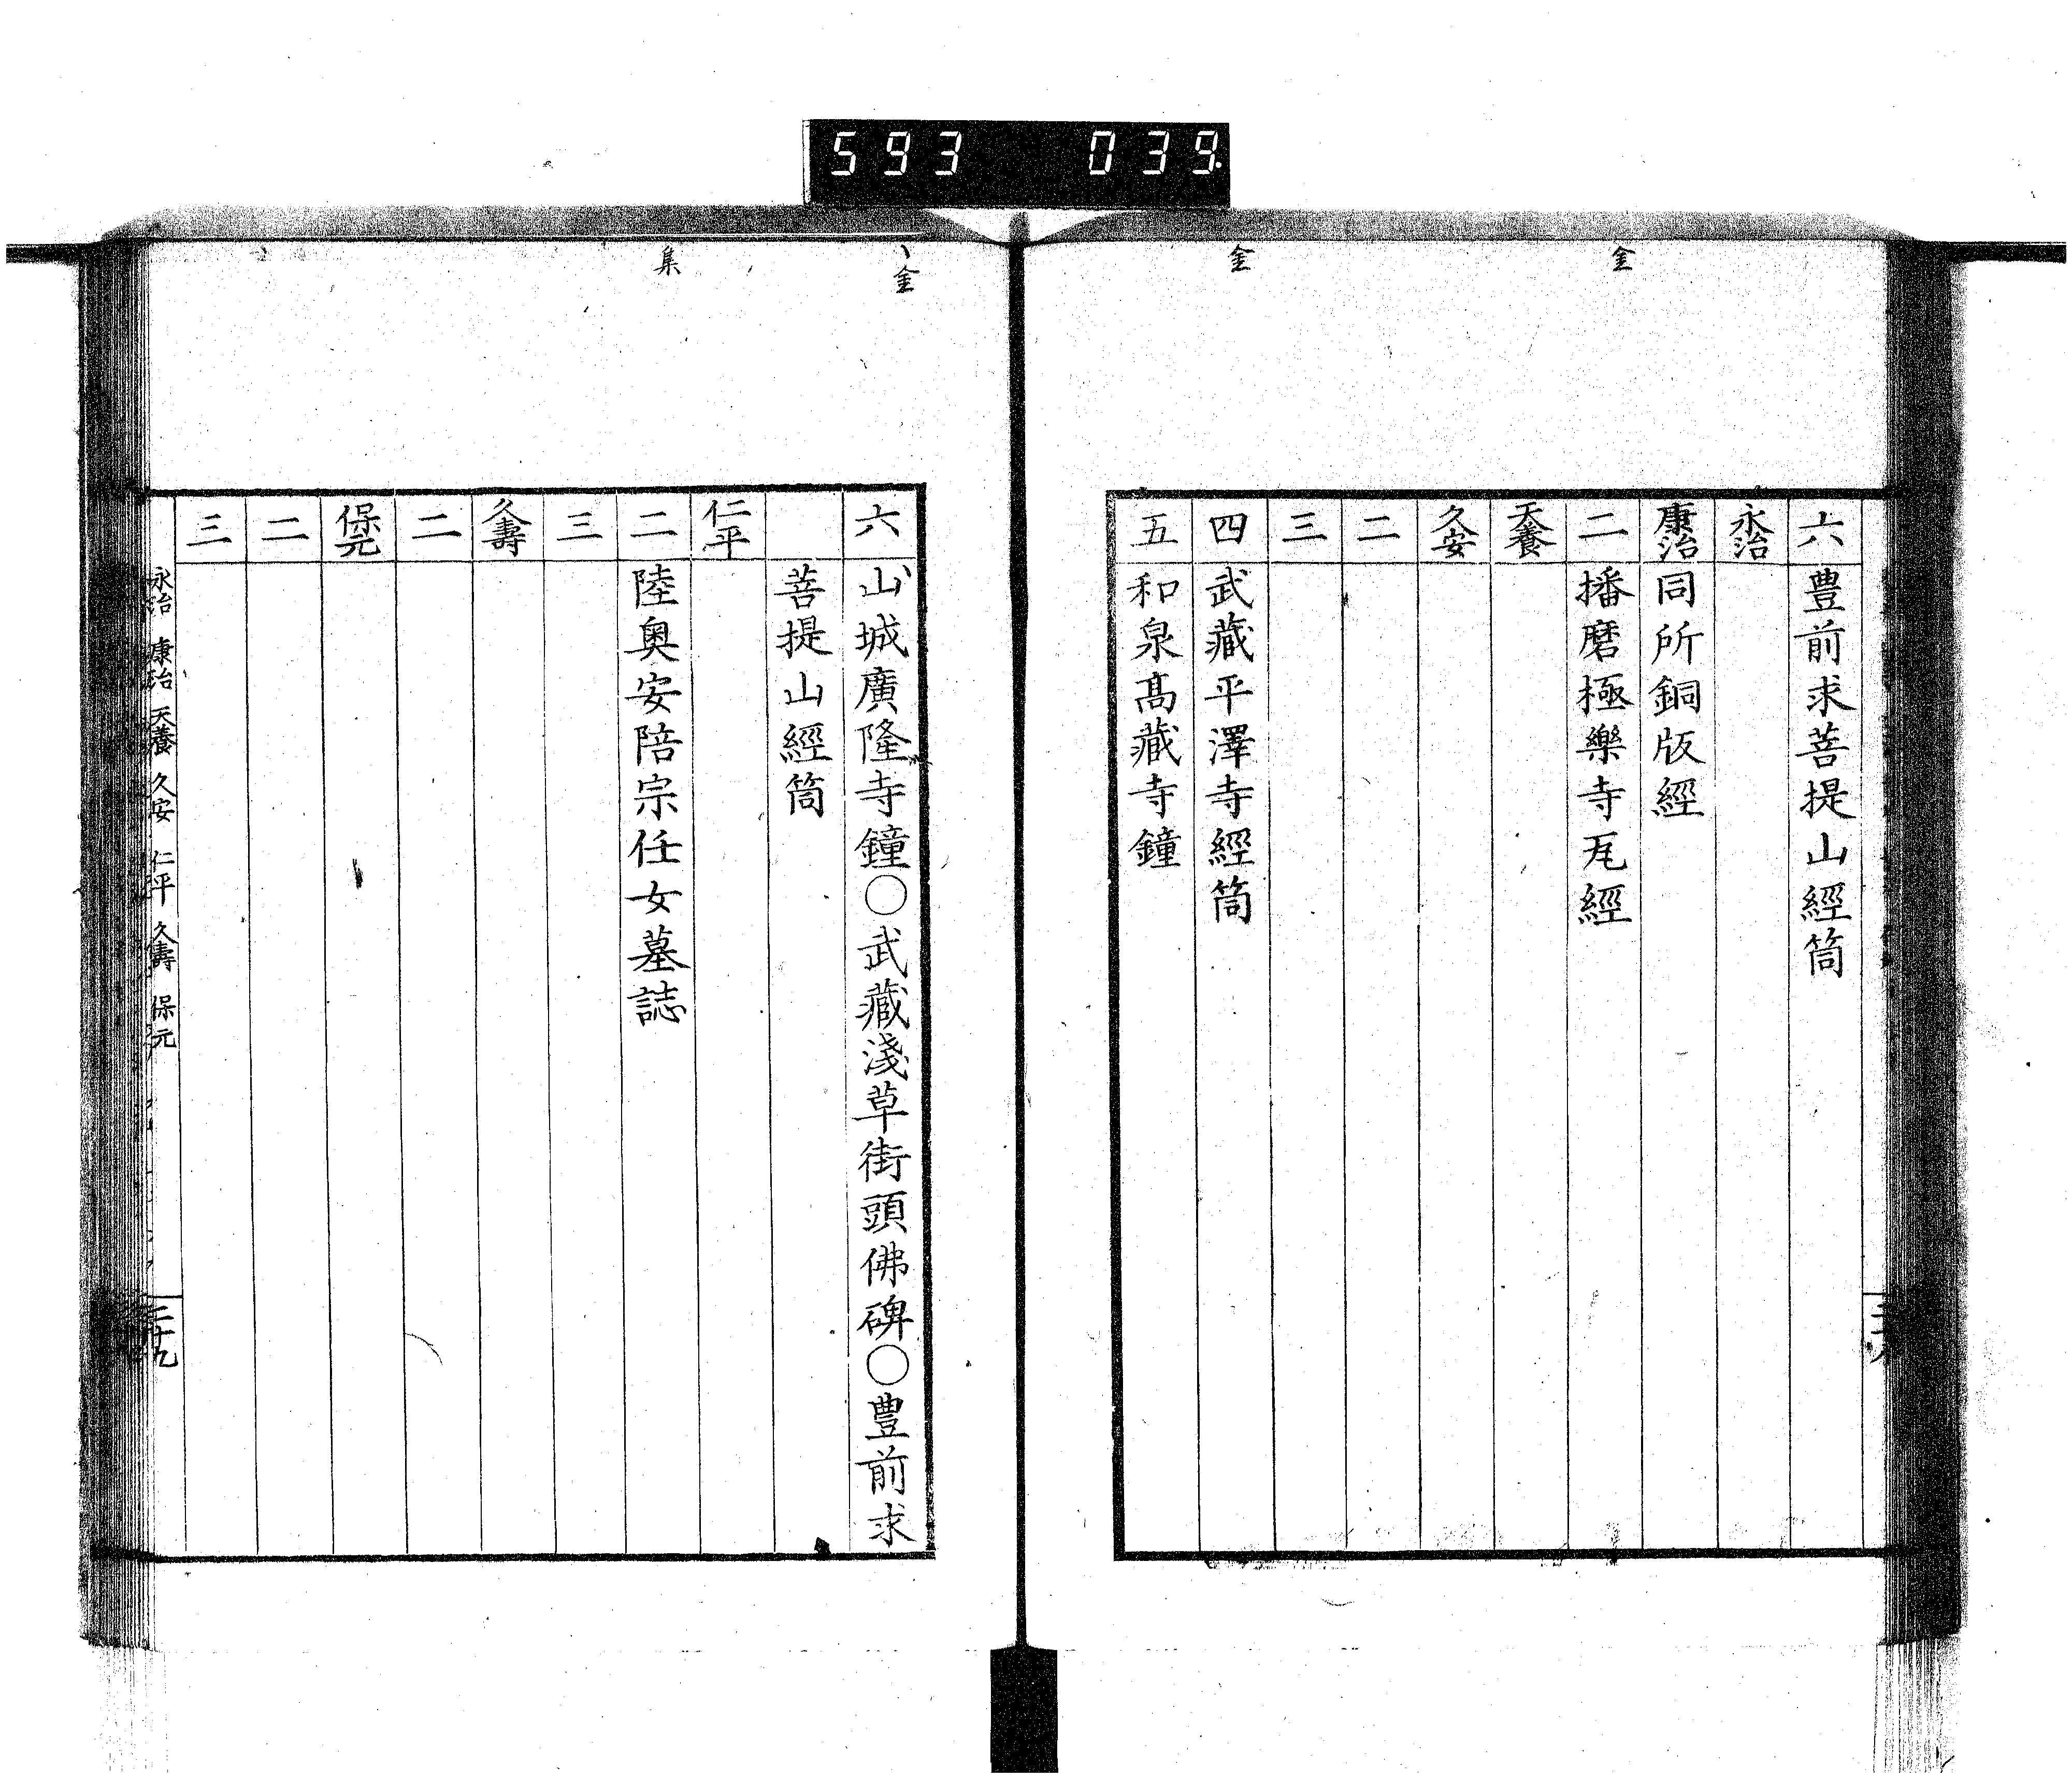 593 039
金
金
六 豊前求菩提山經筒
永治
康治 同所銅版經
二 播磨極樂寺瓦經
天養
久安
二
三
四 武藏平澤寺經筒
五 和泉高藏寺鐘
金
集
六 山城廣隆寺鐘○武藏淺草街頭佛碑○豊前求
菩提山經筒
仁平
二 陸奥安陪宗任女墓誌
三
久壽
二
保元
二
三
永治 康治 天養 久安 仁平 久壽 保元
二十九